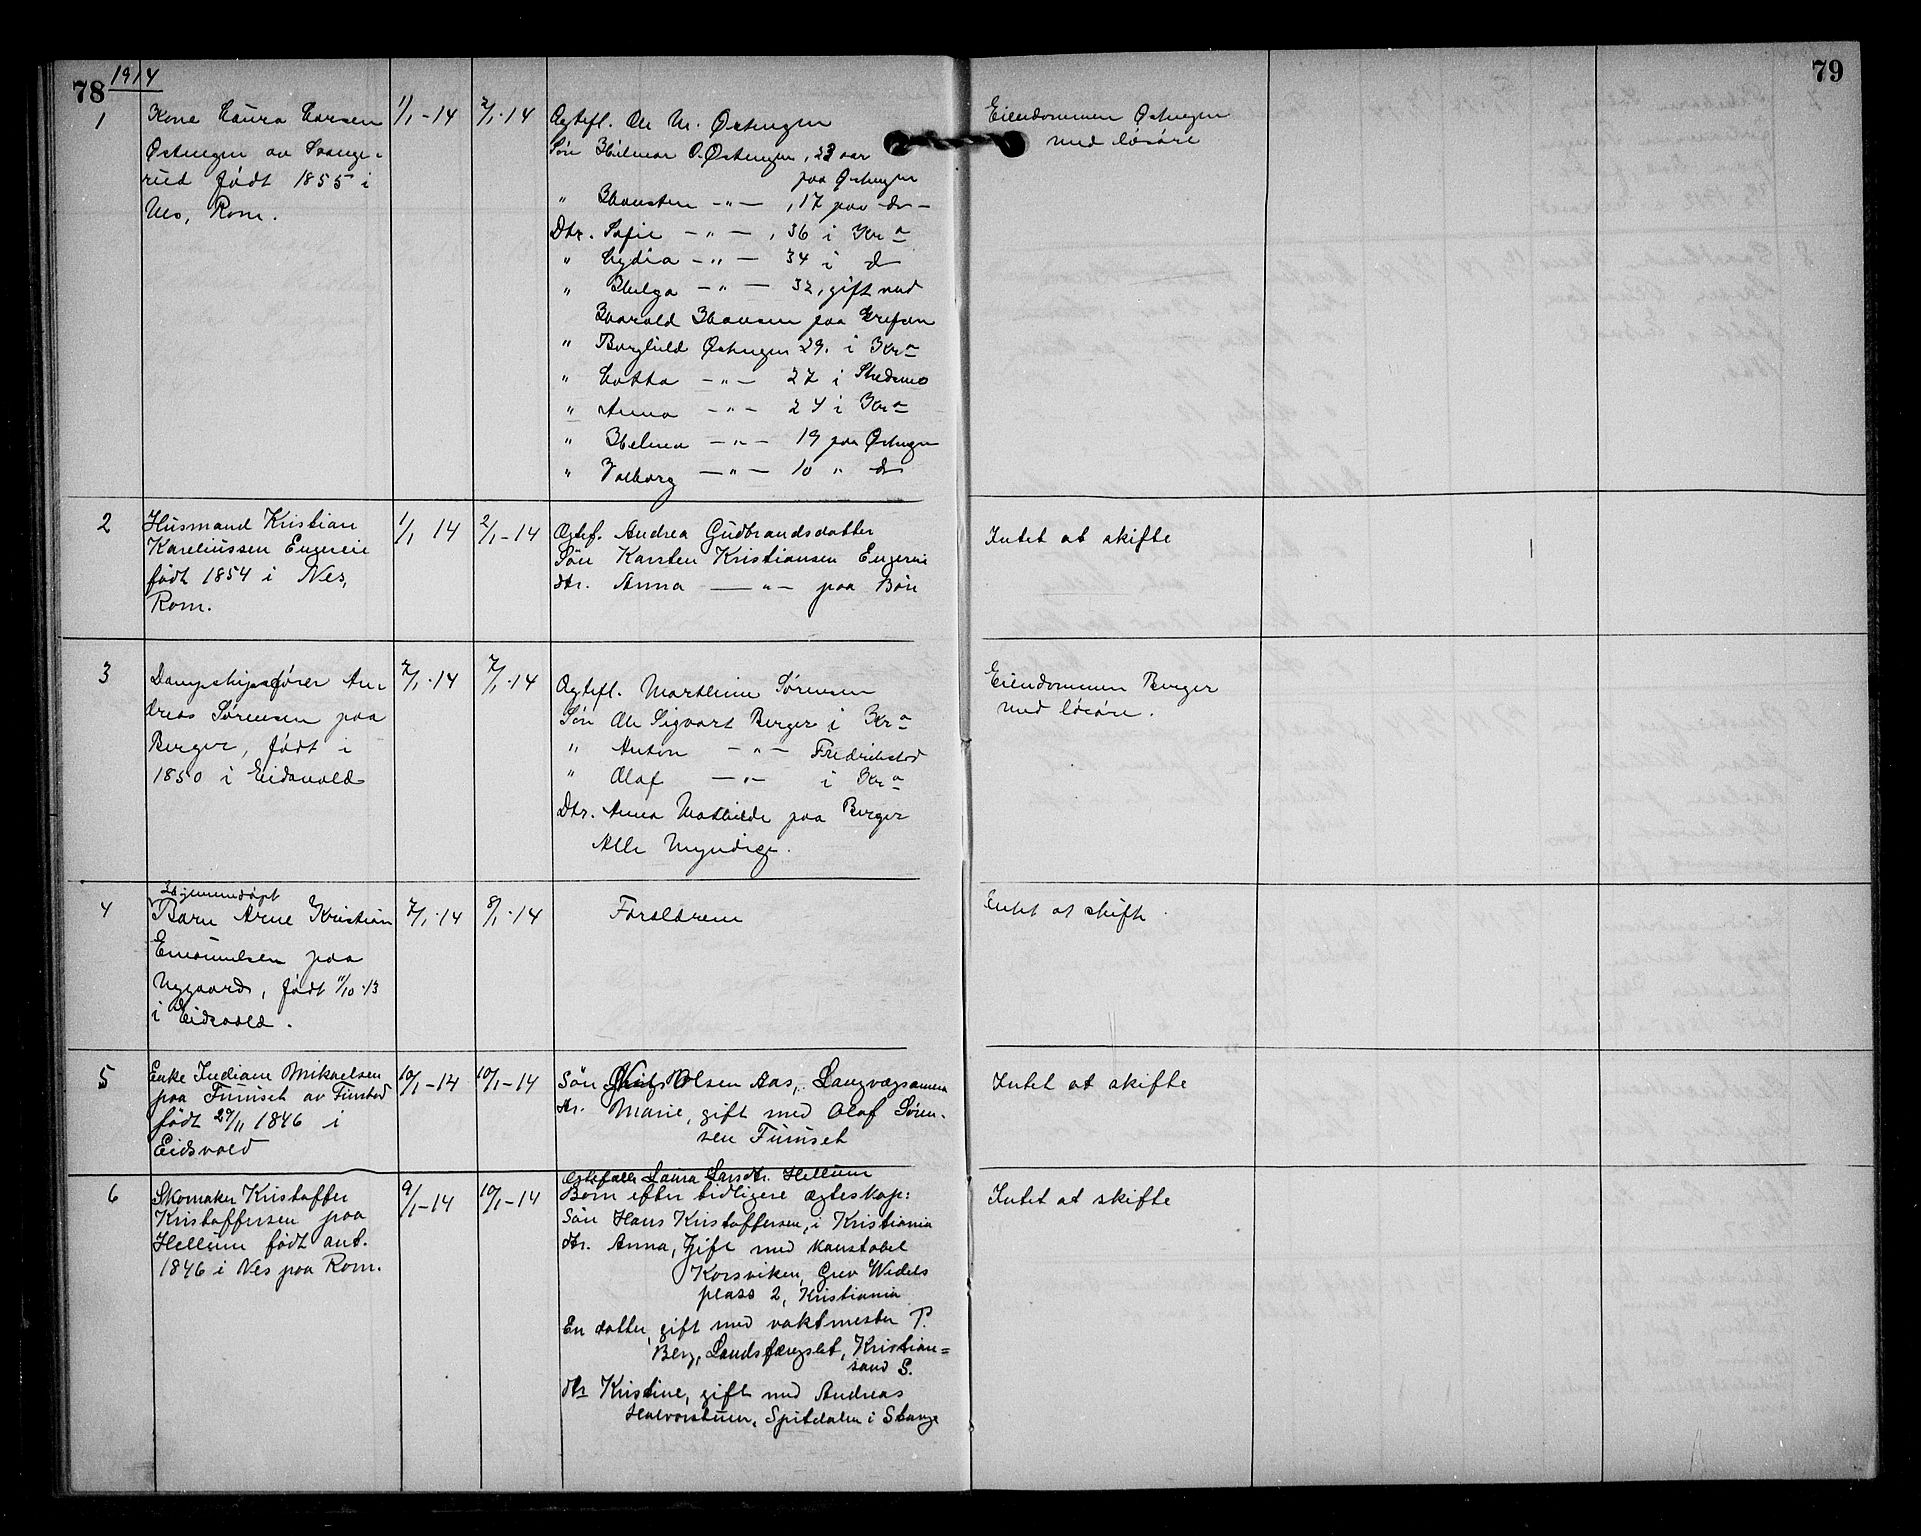 78
1914
79
1
Kone Laura Larsen
Østengen av Svange-
rud født 1855 i
Nes, Rom.
1/1-14
2/1-14
Ogtefl. Ole M. Østengen
Søn Hilmar O. Østengen, 23 aar
paa Østengen
" Thorsten -"- , 17 paa -do-
Dtr. Sofie -"- , 36 i Kr.a
" Lydia -"- 34 i do
" Helga -"- 32, gift med
Harald Hansen paa Grefsen
" Borghild Østengen 29. i Kr.a
" Lotta -"- 27 i Skedsmo
" Anna -"- 24 i Kr.a
" Helma -"- 19 paa Østengen
" Valborg -"- 10 " do
Eiendommen Østengen
med løsøre
2
Husmand Kristian
Kareliussen Engereie
født 1854 i Nes,
Rom.
1/1 14
2/1-14
Ogtef. Andrea Gudbrandsdatter
Søn Karsten Kristiansen Engereie
dtr. Anna -"- paa Bøn
Intet at skifte
3
Dampskipsfører An-
dreas Sørensen paa
Berger, født i
1850 i Eidsvold
2/1.14
7/1.14
Ogtefl. Marthine Sørensen
Søn Ole Sigvart Berger i Kr.a
" Anton -"- Fredrikstad
" Olaf -"- i Kr.a
Dtr. Anna Mathilde paa Berger
Alle Myndige.
Eiendommen Berger
med løsøre.
4
Hjemmedøpt
Barn Arne Kristian
Emanuelsen paa
Nygaard, født 11/10.13
i Eidsvold.
7/1.14
8/1.14
Forældrene
Intet at skifte
5
Enke Indiane Mikaelsen
paa Furuset av Finstad
født 29/11 1846 i
Eidsvold
10/1-14
10/1-14
Søn Olsen Aas, Langvægsamen
dtr. Marie, gift med Olaf Søren-
sen Furuset
Intet at skifte
6
Skomaker Kristoffer
Kristoffersen paa
Hellum født ant.
1846 i Nes paa Rom.
9/1-14
10/1-14
Ektefælle Laura Larsdtr. Hellum
Born efter tidligere ægteskap:
Søn Hans Kristoffersen, i Kristiania
dtr. Anna, Gift med Konstabel
Korsviken, Grev Wedels
plass 2, Kristiania
En datter, gift med vaktmester P.
Berg, Landsfængslet, Kristian=
sand S.
dtr Kristine, gift med Andreas
Halvorstuen, Spitdalen i Stange
Intet at skifte